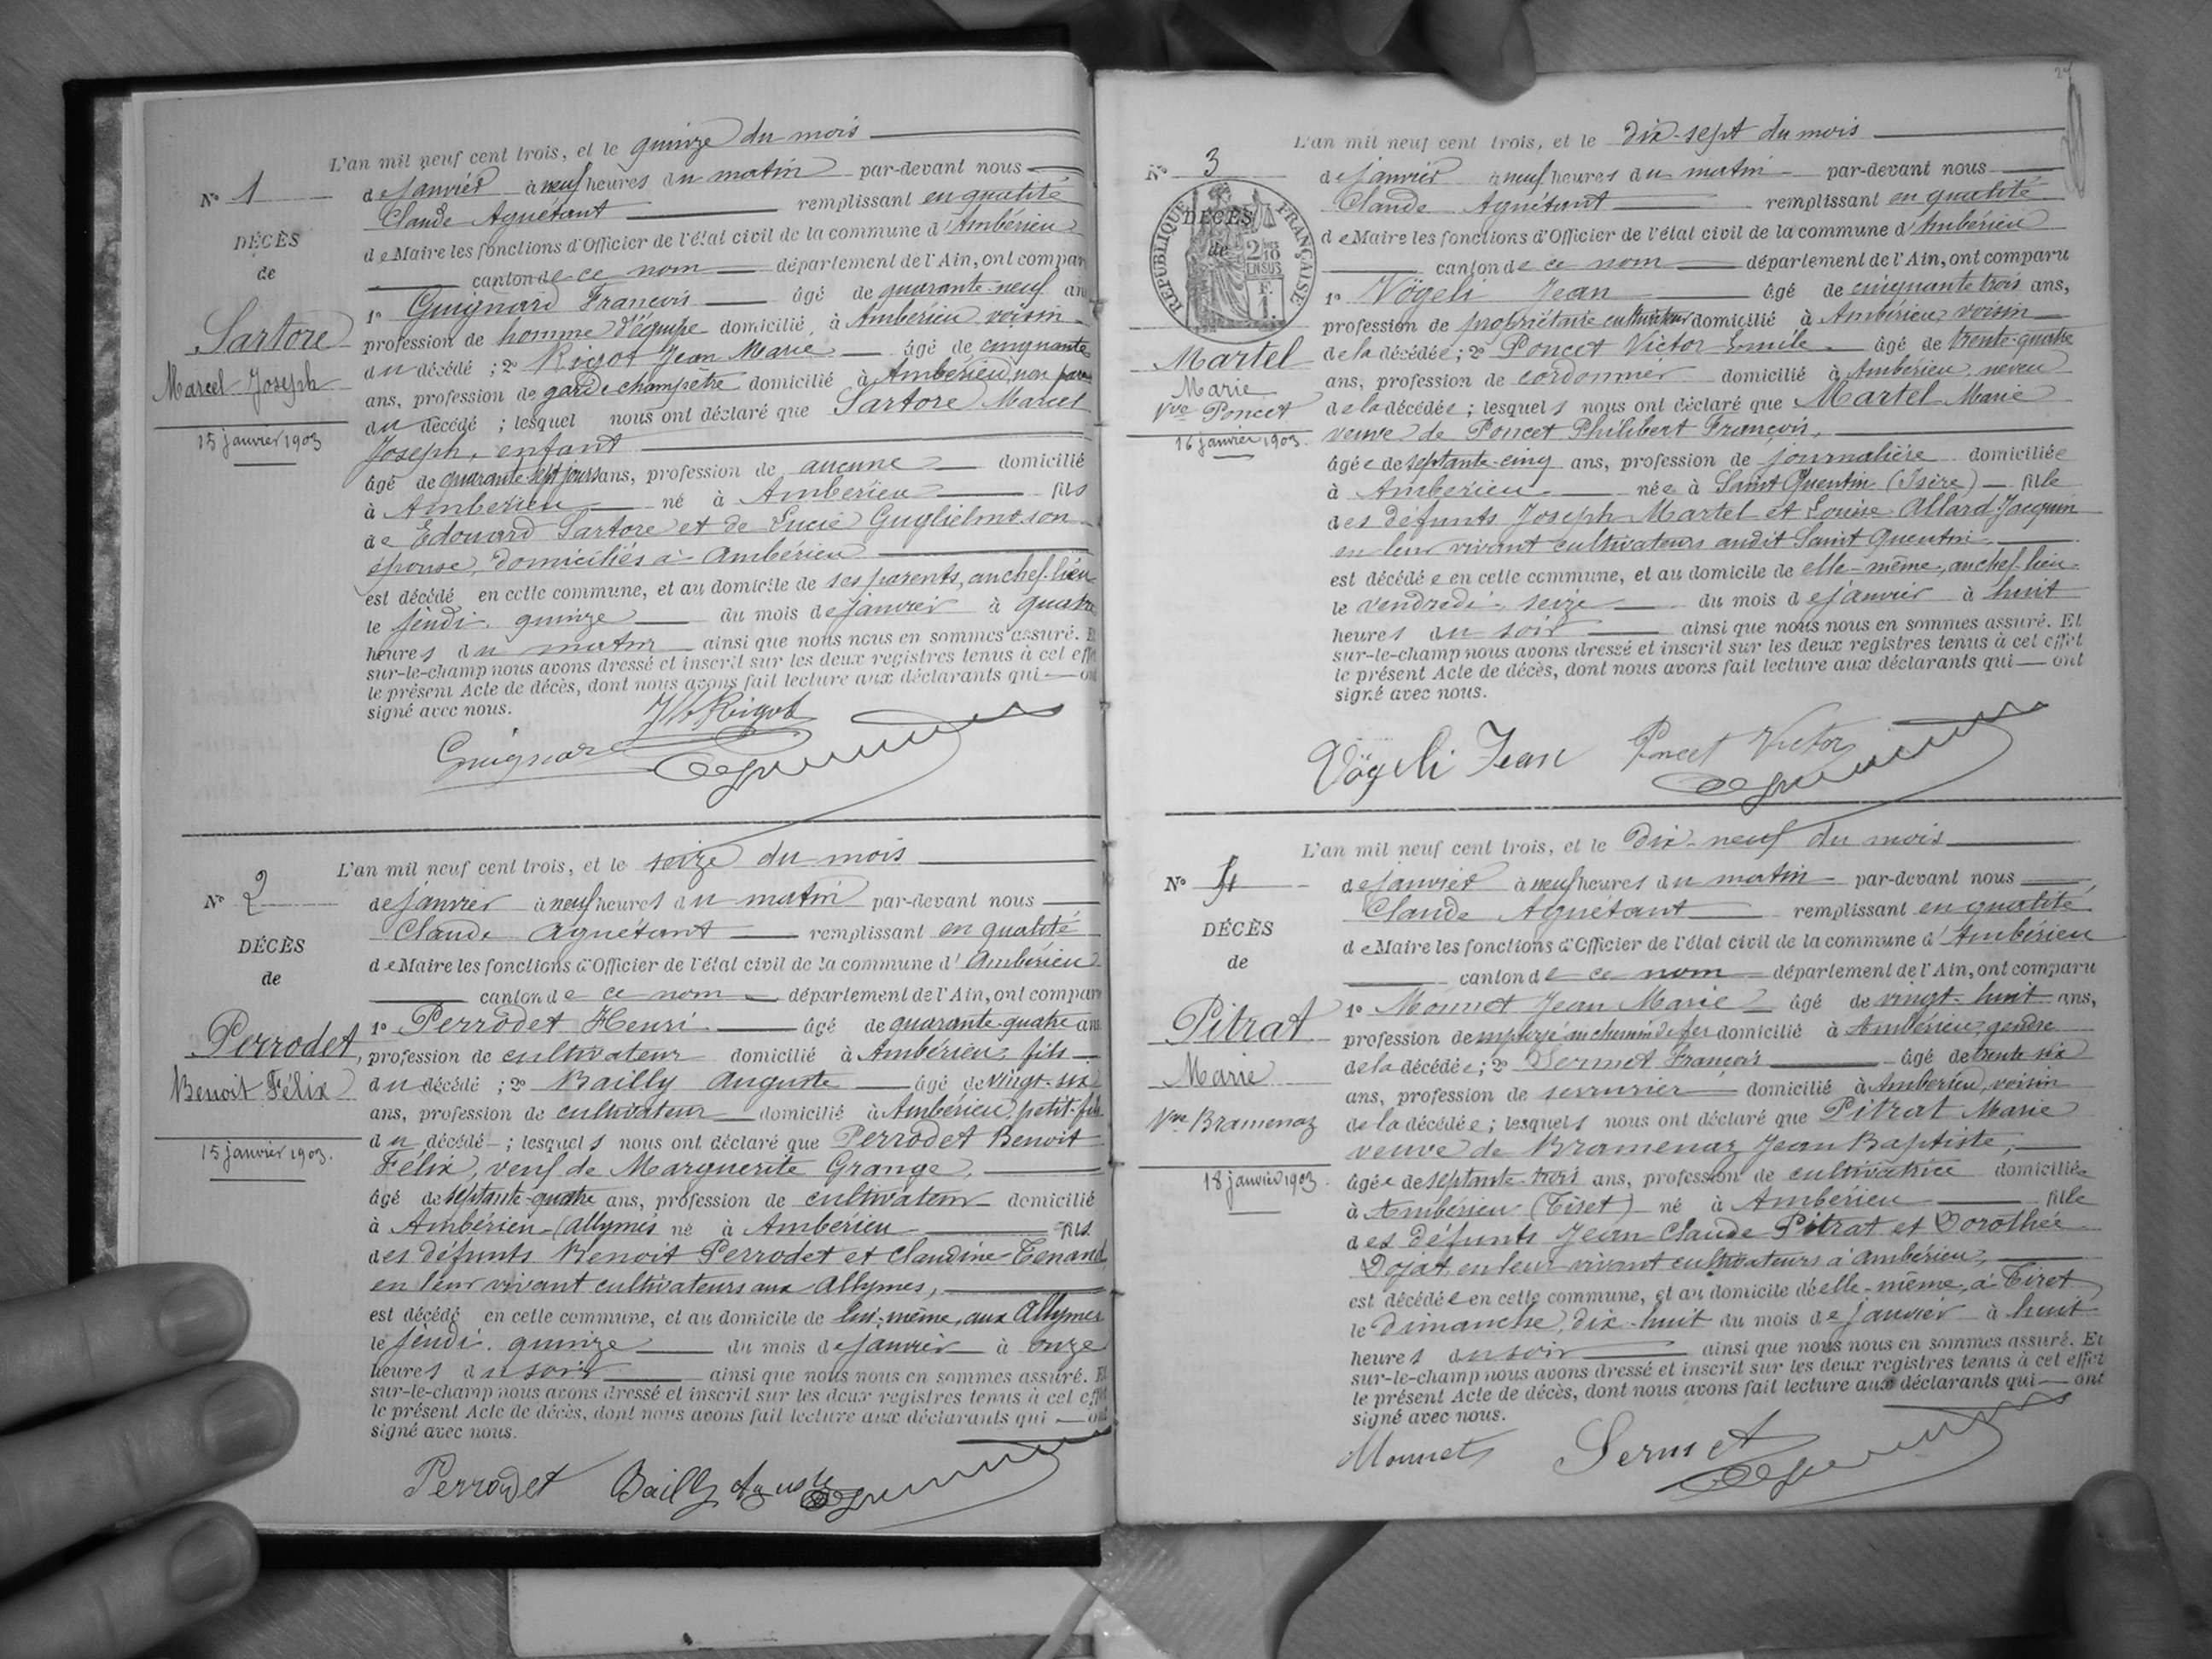 L'an mil neuf cent trois, et le quinze du mois
N° 1 de janvier à neuf heures du matin par-devant nous
Claude Aguétant remplissant en qualité
DÉCÈS
de Maire les fonctions d'Officier de l'état civil de la commune d'Ambérieu
de
canton de ce nom département de l'Ain, ont compar
1° Guignard François âgé de quarante-neuf an
Sartore
profession de homme d'équipe domicilié à Ambérieu voisin
du décédé ; 2° Rigot Jean Marie âgé de cinquante
Marcel Joseph
ans, profession de garde champêtre domicilié à Ambérieu, non
du décédé ; lesquel nous ont déclaré que Sartore Marcel
15 janvier 1903
Joseph, enfant
âgé de quarante-sept jours ans, profession de aucune domicilié
à Ambérieu né à Ambérieu fils
de Edouard Sartore et de Lucie Guglielmo son
épouse, domiciliés à Ambérieu
est décédé en cette commune, et au domicile de ses parents, au chef-lieu
le jeudi quinze du mois de janvier à quatre
heures du matin ainsi que nous nous en sommes assuré. E
sur-le-champ nous avons dressé et inscrit sur les deux registres tenus à cet effet
le présent Acte de décès, dont nous avons fait lecture aux déclarants qui ont
signé avec nous.
JM Rigot
Guignard
L'an mil neuf cent trois, et le seize du mois
N° 2 de janvier à neuf heures du matin par-devant nous
Claude Aguétant remplissant en qualité
DÉCÈS
de Maire les fonctions d'Officier de l'état civil de la commune d'Ambérieu
de
canton de ce nom département de l'Ain, ont compar
1° Perrodet Henri âgé de quarante-quatre ans
Perrodet
profession de cultivateur domicilié à Ambérieu, fils
Benoit Félix
du décédé ; 2° Bailly Auguste âgé de vingt-six
ans, profession de cultivateur domicilié à Ambérieu, petit-fils
du décédé ; lesquels nous ont déclaré que Perrodet Benoit
15 janvier 1903.
Félix, veuf de Marguerite Grange,
âgé de septante-quatre ans, profession de cultivateur domicilié
à Ambérieu (Allymes né à Ambérieu fils
des défunts Benoit Perrodet et Claudine Tenand
en leur vivant cultivateurs aux Allymes,
est décédé en cette commune, et au domicile de lui-même, aux Allymes
le jeudi quinze du mois de janvier à onze
heures du soir ainsi que nous nous en sommes assuré. Et
sur-le-champ nous avons dressé et inscrit sur les deux registres tenus à cet effet
le présent Acte de décès, dont nous avons fait lecture aux déclarants qui ont
signé avec nous.
Perrodet Bailly Auguste
L'an mil neuf cent trois, et le dix-sept du mois
N° 3
de janvier à neuf heures du matin par-devant nous
Claude Aguétant remplissant en qualité
RÉPUBLIQUE FRANÇAISE
DÉCÈS
de
2/10 EN SUS
F. 1.
de Maire les fonctions d'Officier de l'état civil de la commune d'Ambérieu
canton de ce nom département de l'Ain, ont comparu
1° Vögeli Jean âgé de cinquante trois ans,
profession de propriétaire cultivateur domicilié à Ambérieu, voisin
Martel
de la décédée ; 2° Poncet Victor Emile âgé de trente-quatre
Marie
ans, profession de cordonnier domicilié à Ambérieu neveu
Vve Poncet
de la décédée ; lesquels nous ont déclaré que Martel Marie
16 janvier 1903.
veuve de Poncet Philibert François,
âgée de septante-cinq ans, profession de journalière domiciliée
à Ambérieu née à Saint Quentin (Isère) fille
des défunts Joseph Martel et Louise Allard-Jacquin
en leur vivant cultivateurs audit Saint Quentin
est décédée en cette commune, et au domicile de elle-même, au chef-lieu
le vendredi seize du mois de janvier à huit
heures du soir ainsi que nous nous en sommes assuré. Et
sur-le-champ nous avons dressé et inscrit sur les deux registres tenus à cet effet
le présent Acte de décès, dont nous avons fait lecture aux déclarants qui ont
signé avec nous.
Vögeli Jean Poncet Victor
L'an mil neuf cent trois, et le dix-neuf du mois
N° 4 de janvier à neuf heures du matin par-devant nous
Claude Aguétant remplissant en qualité
DÉCÈS
de Maire les fonctions d'Officier de l'état civil de la commune d'Ambérieu
de
canton de ce nom département de l'Ain, ont comparu
1° Monnet Jean Marie âgé de vingt-huit ans,
Pitrat
profession de employé au chemin de fer domicilié à Ambérieu, gendre
de la décédée ; 2° Sermet François âgé de trente six
Marie
ans, profession de serrurier domicilié à Ambérieu, voisin
Vve Bramenaz
de la décédée ; lesquels nous ont déclaré que Pitrat Marie
veuve de Bramenaz Jean Baptiste,
18 janvier 1903.
âgée de septante-trois ans, profession de cultivatrice domiciliée
à Ambérieu (Tiret) né à Ambérieu fille
des défunts Jean Claude Pitrat et Dorothée
Dojat, en leur vivant cultivateurs à Ambérieu,
est décédée en cette commune, et au domicile d'elle-même, à Tiret
le dimanche dix-huit du mois de janvier à huit
heures du soir ainsi que nous nous en sommes assuré. Et
sur-le-champ nous avons dressé et inscrit sur les deux registres tenus à cet effet
le présent Acte de décès, dont nous avons fait lecture aux déclarants qui ont
signé avec nous.
Monnet Sermet